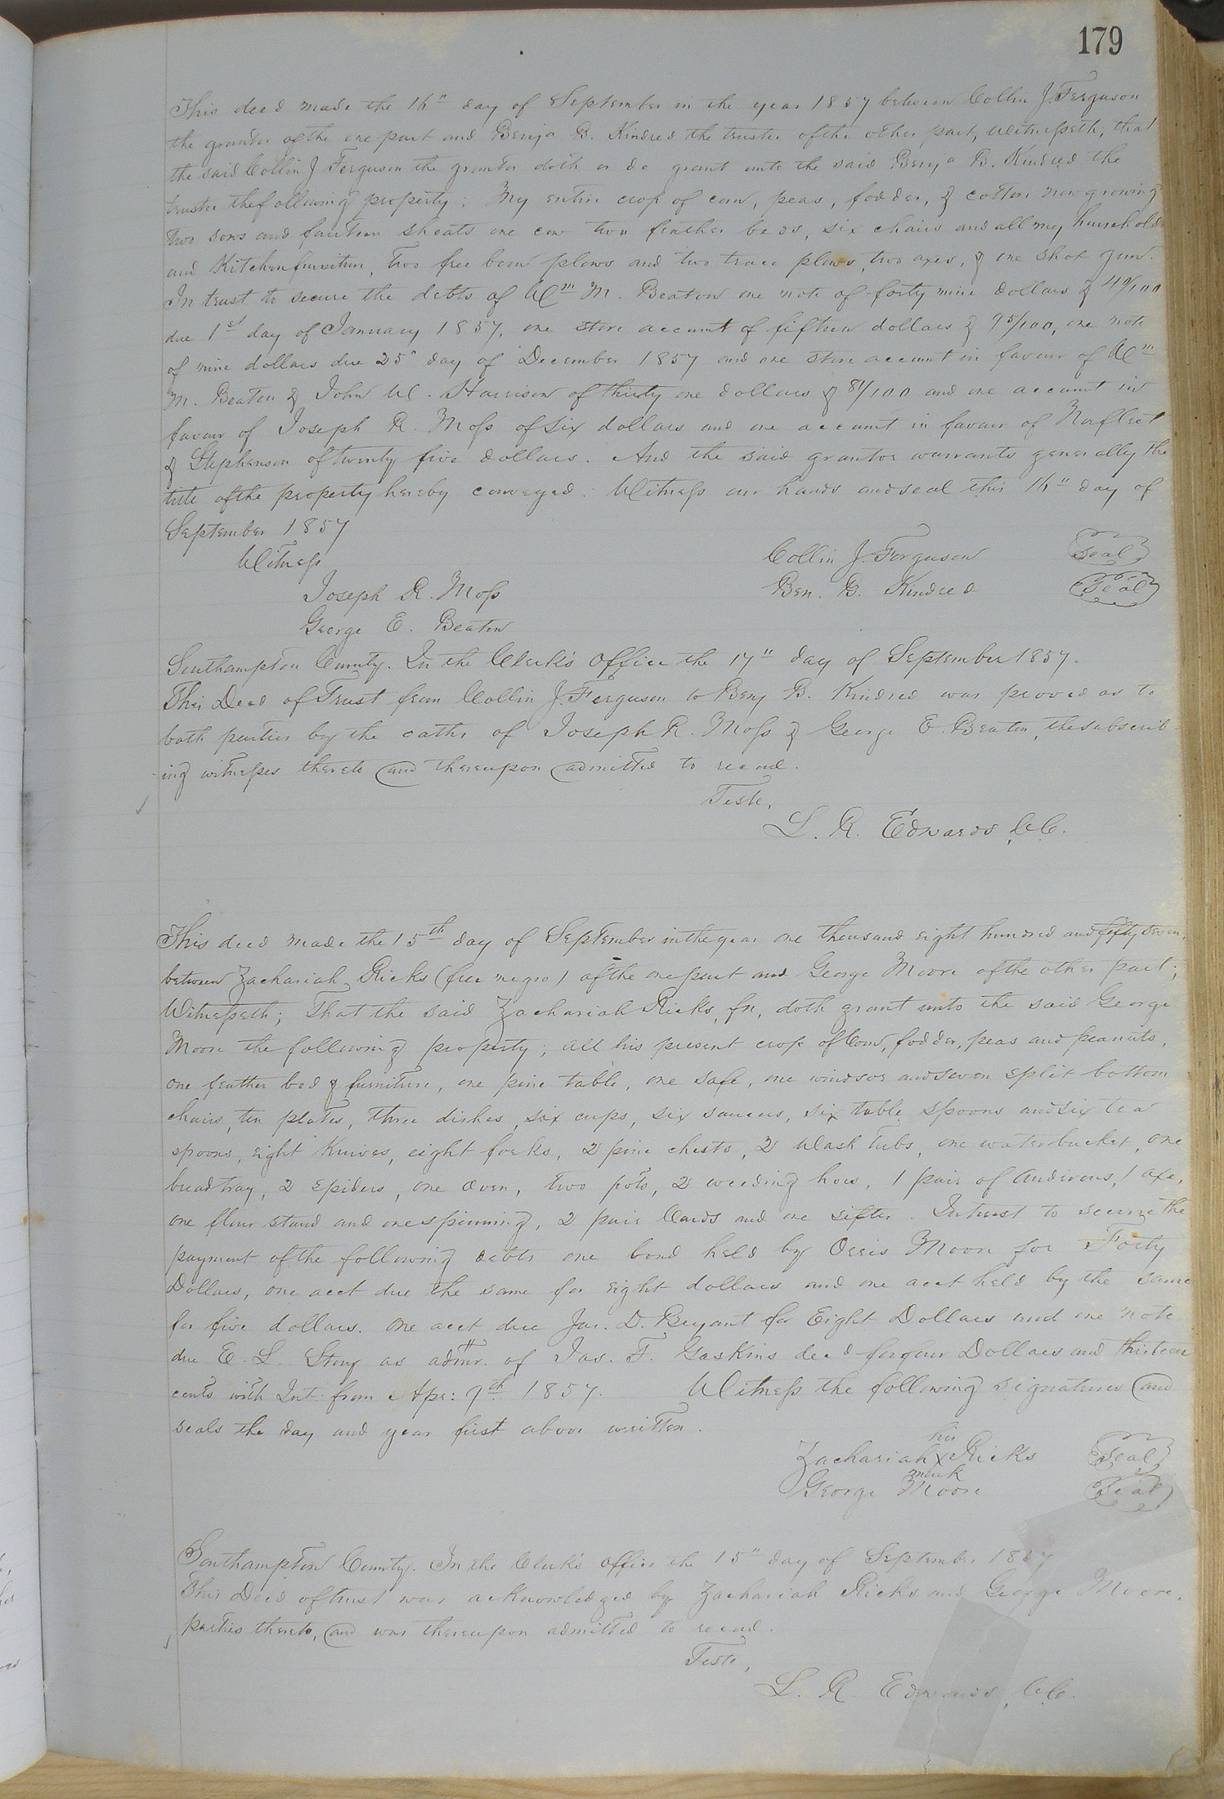 179
This deed made the 14" day of September in the year 1857 between Collin J. Ferguson
the grantor of the one part and Benja B. Kindred the trustee of the other part, Witnesseth, that
the said Collin J Ferguson the grantor doth or do grant unto the said Benja B. Kindred the
trustee the following property: My entire crop of corn, peas, fodder, & cotton now growing
two sows and fourteen shoats one cow two feather beds, six chairs and all my household
and Kitchen furniture, two free born plows and two trace plows, two axes, & one shot gun.
In trust to secure the debts of Wm M. Beaton one note of forty nine dollars & /100
due 1st day of January 1857, one store account of fifteen dollars & 95/100, one note
of nine dollars due 25" day of December 1857 and one store account in favour of Wm
M. Beaton & John W. Harrison of thirty one dollars & 81/100 and one account in
favour of Joseph R. Moss of six dollars and one account in favour of Norfleet
& Stephenson of twenty five dollars. And the said grantor warrants generally the
title of the property hereby conveyed. Witness our hands and seal this 14" day of
September 1857
Witness
Collin J. Ferguson Seal
Joseph R. Moss
Ben. B. Kindred Seal
George E. Beaton
Southampton County. In the Clerk's Office the 17" day of September 1857.
This Deed of Trust from Collin J. Ferguson to Benj B. Kindred was proved as to
both parties by the oaths of Joseph R. Moss & George E. Beaton, the subscrib-
ing witnesses thereto and thereupon admitted to record.
Teste,
L. R. Edwards, C.C.
This deed made the 15th day of September in the year one thousand eight hundred and fifty seven,
between Zachariah Ricks (free negro) of the one part and George Moore of the other part;
Witnesseth; That the said Zachariah Ricks, fn, doth grant unto the said George
Moore the following property; all his present crop of Corn, fodder, peas and peanuts,
one feather bed & furniture, one pine table, one safe, one windsor and seven split bottom
chairs, ten plates, three dishes, six cups, six saucers, six table spoons and six tea
spoons, eight Knives, eight forks, 2 pine chests, 2 Wash Tubs, one water bucket, one
bread tray, 2 Spiders, one Oven, two pots, 2 weeding hoes, 1 pair of Andirons, 1 axe,
one flour stand and one spinning, 2 pair Cards and one sifter. In trust to secure the
payment of the following debts one bond held by Moore for Forty
Dollars, one acct due the same for eight dollars and one acct held by the same
for five dollars. One acct due Jas. D. Bryant for Eight Dollars and one note
due E. L. as admr. of Jas. F. Gaskins decd for four Dollars and thirteen
cents with Int: from Apr: 9th 1857. Witness the following signatures and
seals the day and year first above written.
his
Zachariah X Ricks Seal
mark
George Moore Seal
Southampton County. In the Clerk's Office the 15" day of September 1857
This Deed of trust was acknowledged by Zachariah Ricks and George Moore,
parties thereto, and was thereupon admitted to record.
Teste,
L. R. Edwards, C.C.